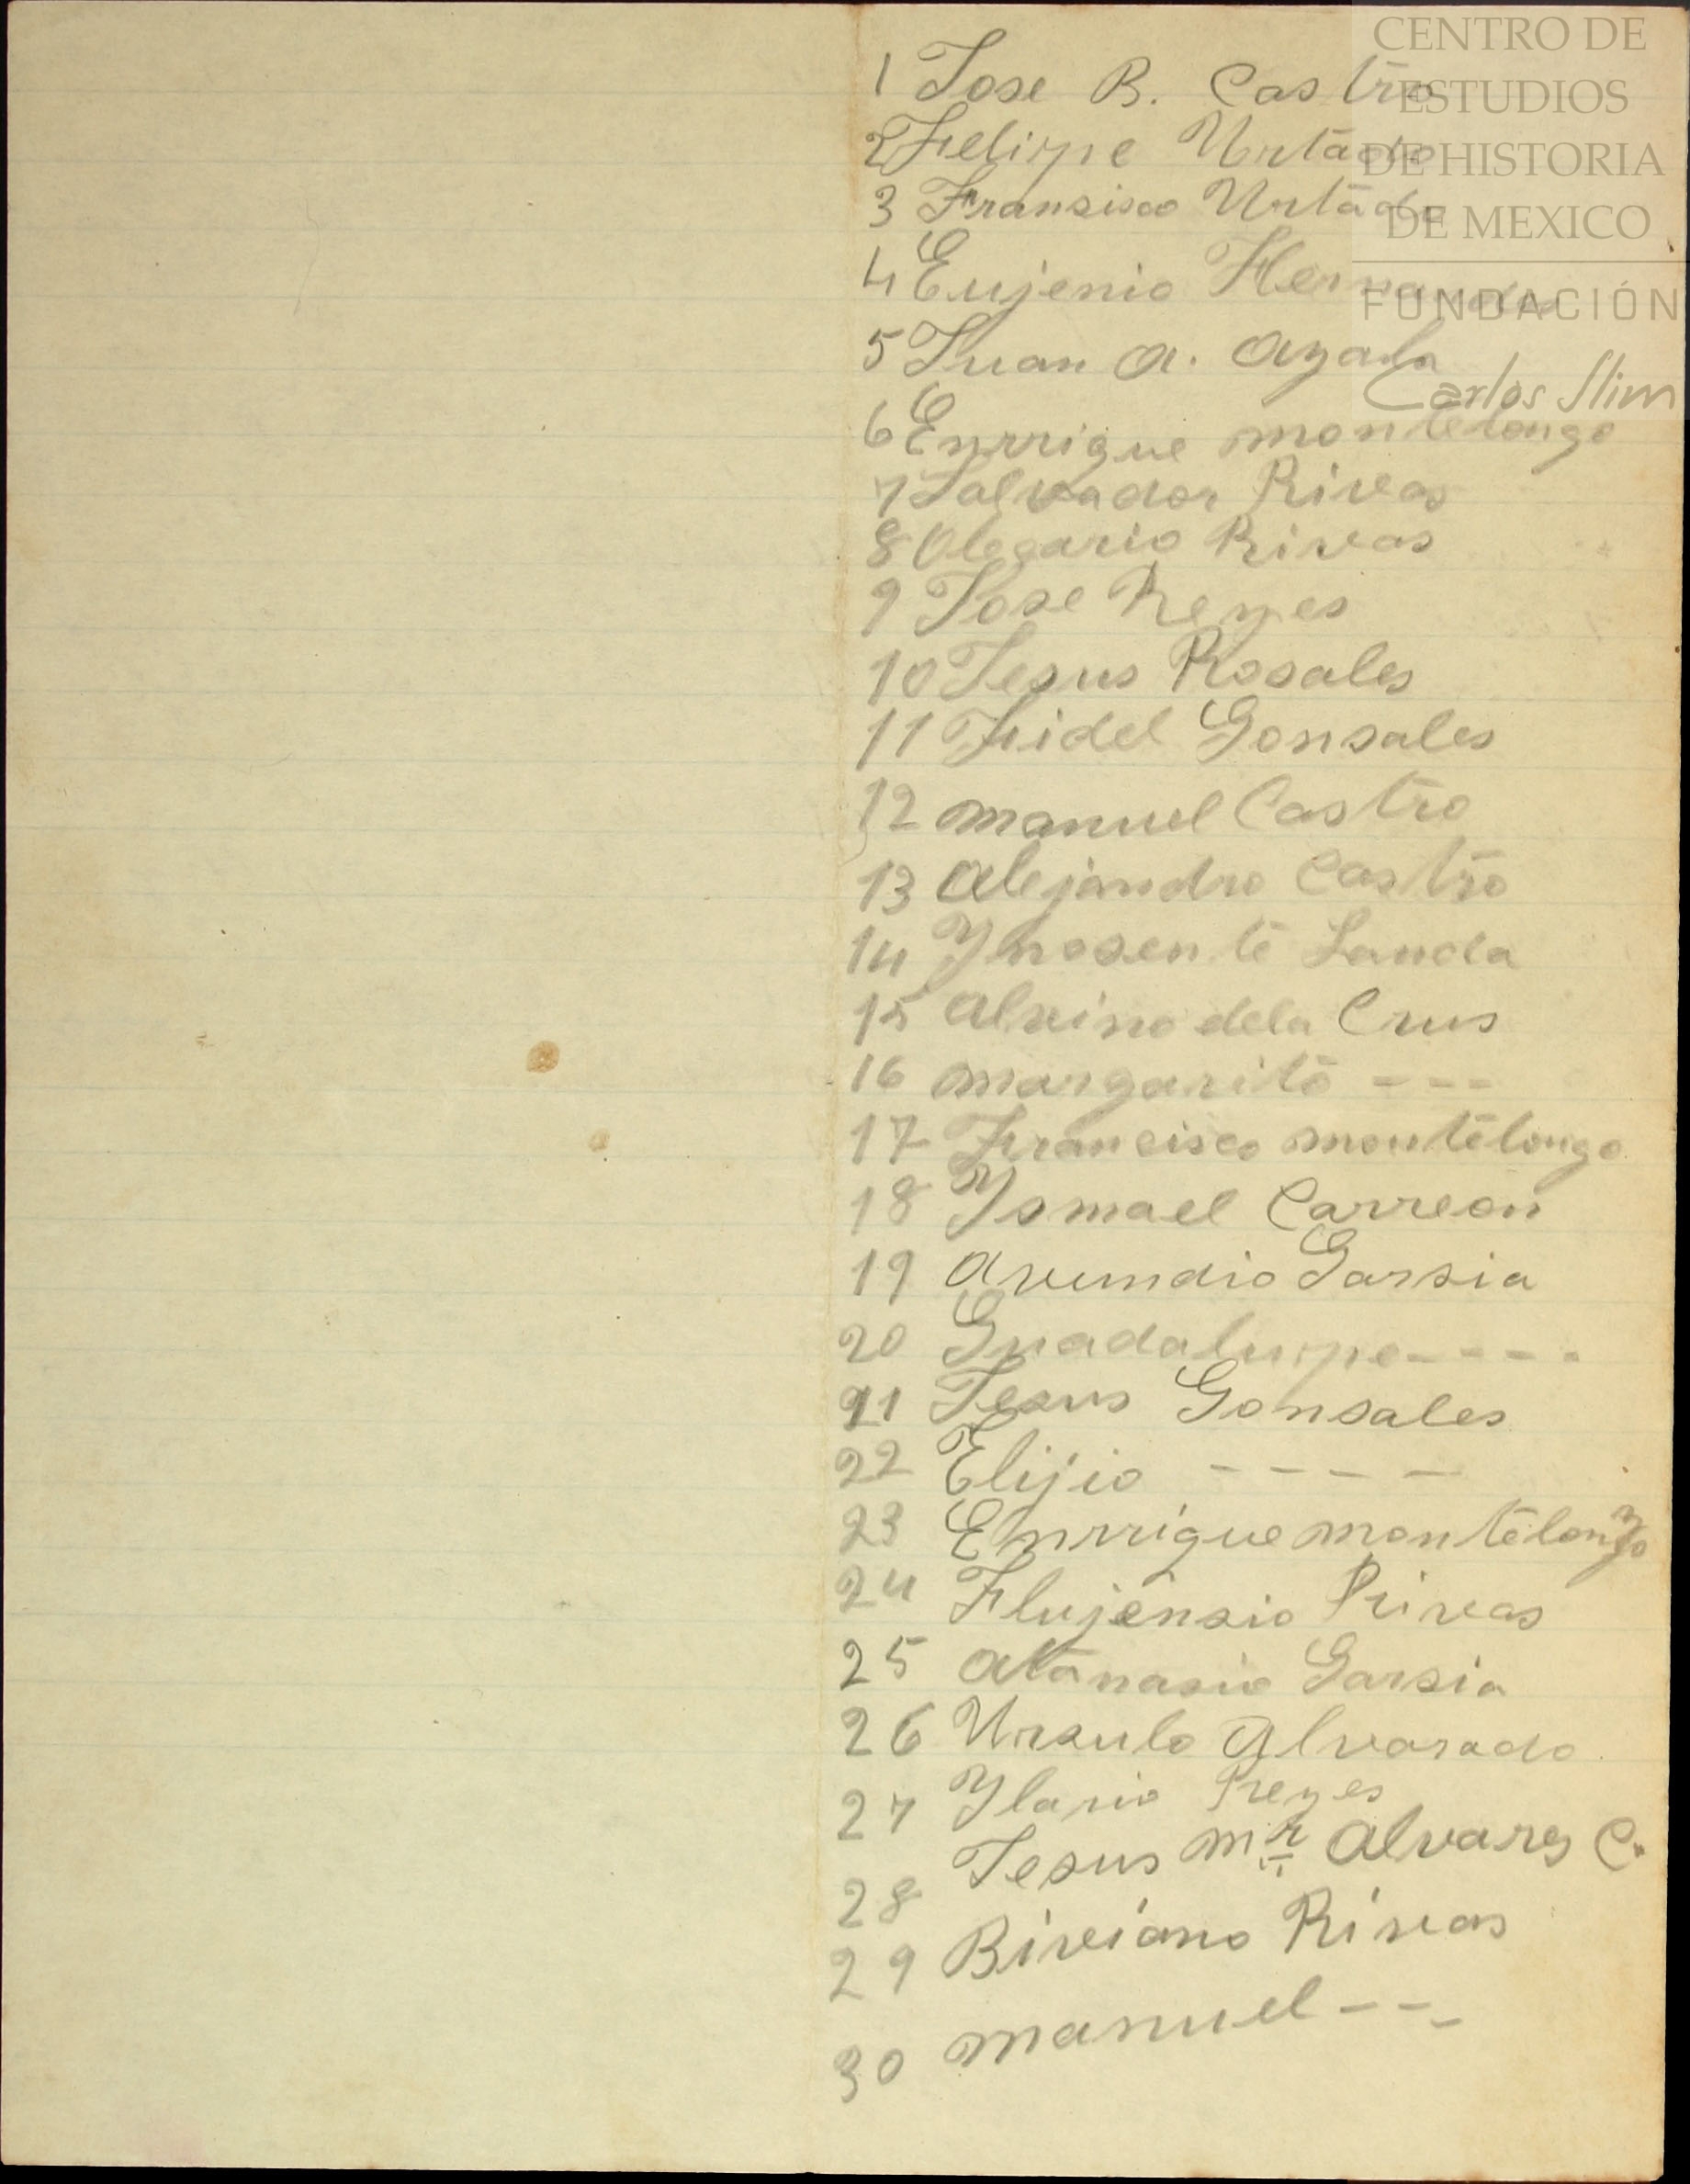 CENTRO DE
ESTUDIOS
DE HISTORIA
DE MEXICO
FUNDACIÓN
Carlos Slim
1 Jose B. Castro
2 Felipe Urtado
3 Fransisco Urtado
4 Eujenio Hernandes
5 Juan A. Ayala
6 Enrrique montelongo
7 Salvador Rivas
8 Olegario Rivas
9 Jose Reyes
10 Jesus Rosales
11 Fidel Gonsales
12 manuel Castro
13 Alejandro Castro
14 Ynosente Landa
15 Alvino dela Crus
16 margarito - - -
17 Francisco montelongo
18 Ysmael Carreon
19 Avundio Garsia
20 Guadalupe - - - -
21 Jesus Gonsales
22 Elijio - - - -
23 Enrrique montelongo
24 Flujensio Rivas
25 Atanasio Garsia
26 Ursulo Alvarado
27 Ylario Reyes
28 Jesus Mª Alvares C.
29 Biviano Rivas
30 manuel - - -